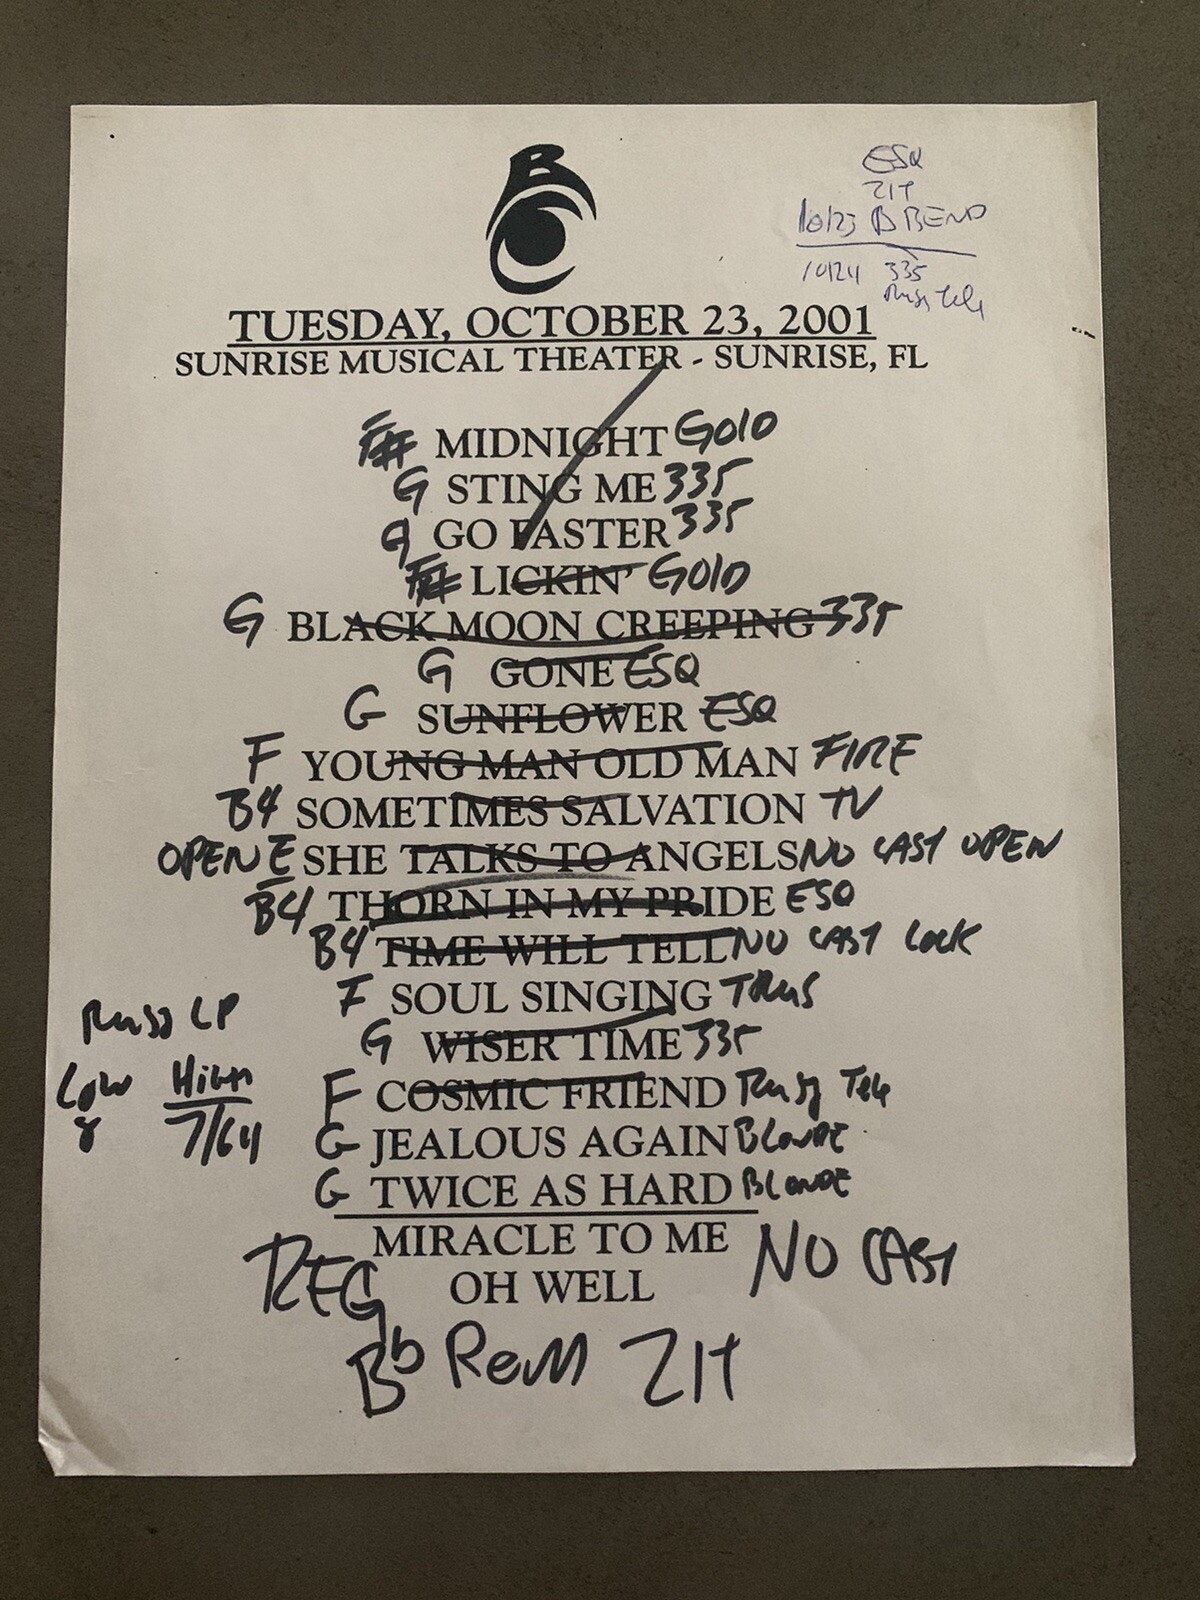 B
ESQ
ZIT
10/23 B BEND
10/24 335
Tele
TUESDAY, OCTOBER 23, 2001
SUNRISE MUSICAL THEATER - SUNRISE, FL
F# MIDNIGHT GOLD
G STING ME 335
G GO FASTER 335
F# LICKIN' GOLD
G BLACK MOON CREEPING 335
G GONE ESQ
G SUNFLOWER ESQ
F YOUNG MAN OLD MAN FIRE
B4 SOMETIMES SALVATION TV
OPEN E SHE TALKS TO ANGELS NO CAST OPEN
B4 THORN IN MY PRIDE ESQ
B4 TIME WILL TELL NO CAST LOCK
F SOUL SINGING TRUS
Russ LP
G WISER TIME 335
LOW HIGH
F COSMIC FRIEND Russ Tele
8 7/64
G JEALOUS AGAIN BLONDE
G TWICE AS HARD BLONDE
MIRACLE TO ME NO CAST
REG OH WELL
Bb REM ZIT